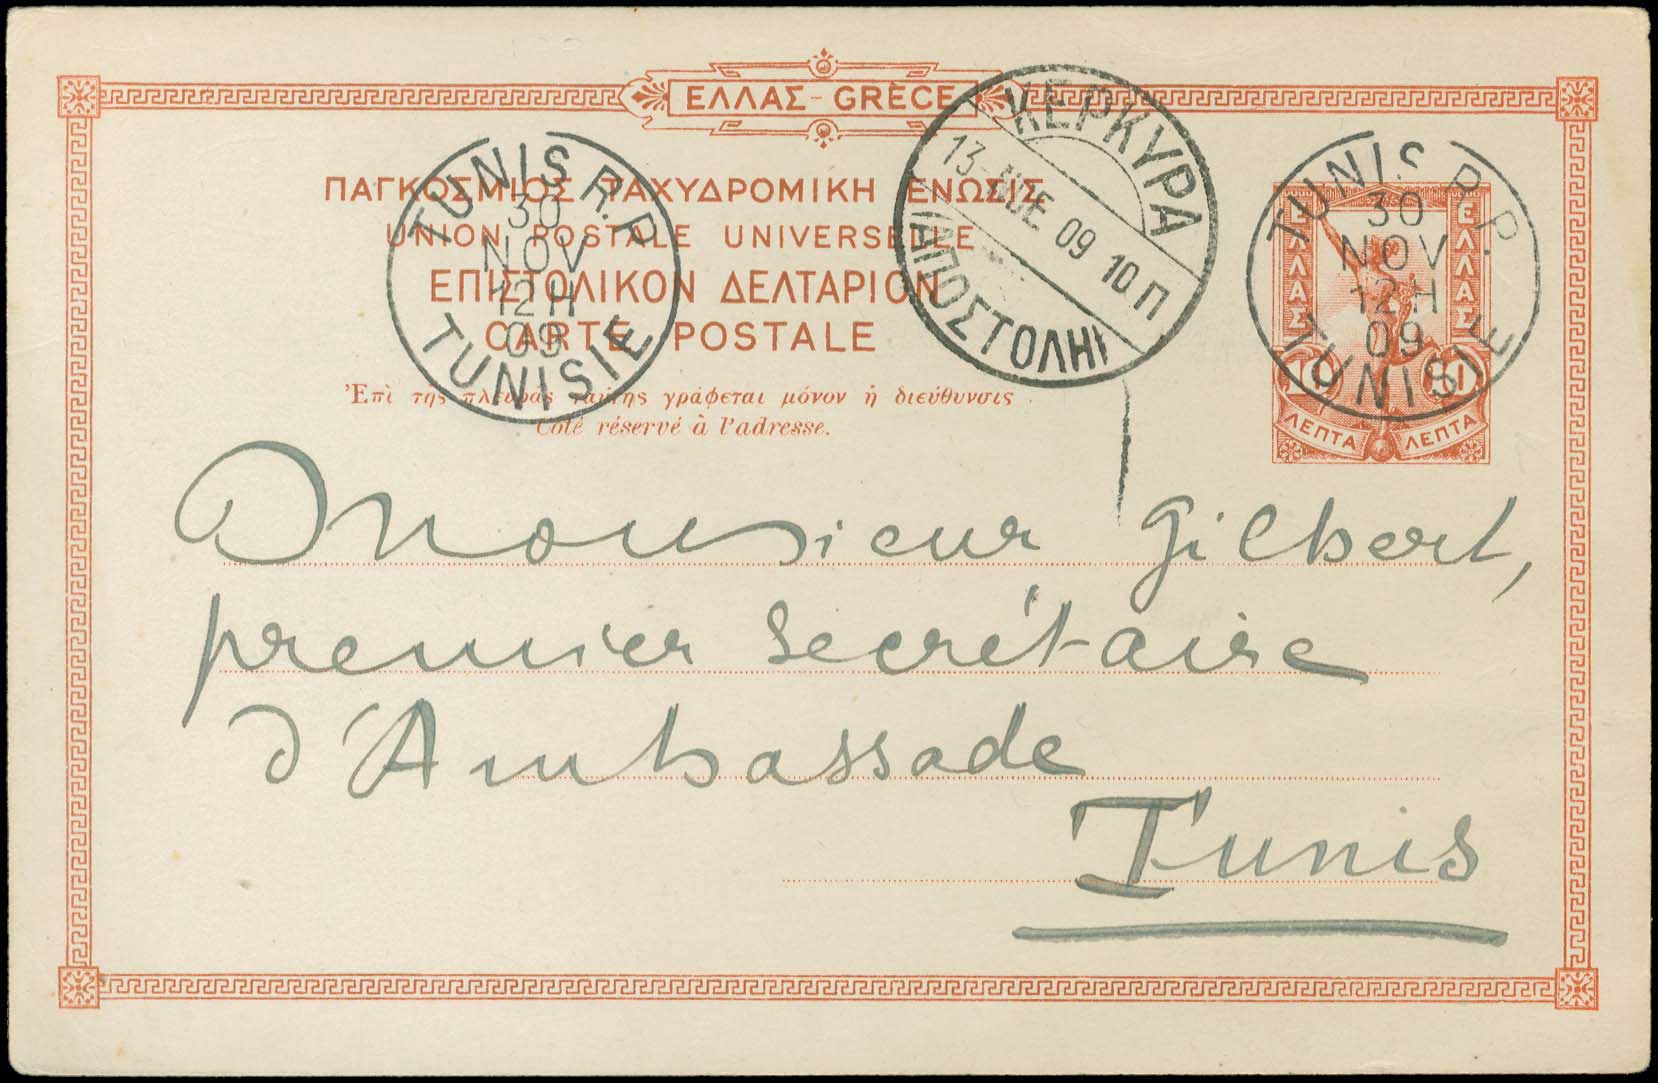 ΕΛΛΑΣ - GRÈCE
ΠΑΓΚΟΣΜΙΟΣ ΤΑΧΥΔΡΟΜΙΚΗ ΕΝΩΣΙΣ
UNION POSTALE UNIVERSELLE
ΕΠΙΣΤΟΛΙΚΟΝ ΔΕΛΤΑΡΙΟΝ
CARTE POSTALE
Ἐπὶ τῆς πλευρᾶς ταύτης γράφεται μόνον ἡ διεύθυνσις
Côté réservé à l'adresse.
TUNIS R.P.
30
NOV
12H
09
TUNISIE
ΚΕΡΚΥΡΑ
13-ΝΟΕ 09 10 Π
(ΑΠΟΣΤΟΛΗ)
TUNIS R.P.
30
NOV
12H
09
TUNISIE
ΕΛΛΑΣ
ΕΛΛΑΣ
10 10
ΛΕΠΤΑ ΛΕΠΤΑ
Monsieur Gilbert,
premier secrétaire
d'Ambassade
Tunis